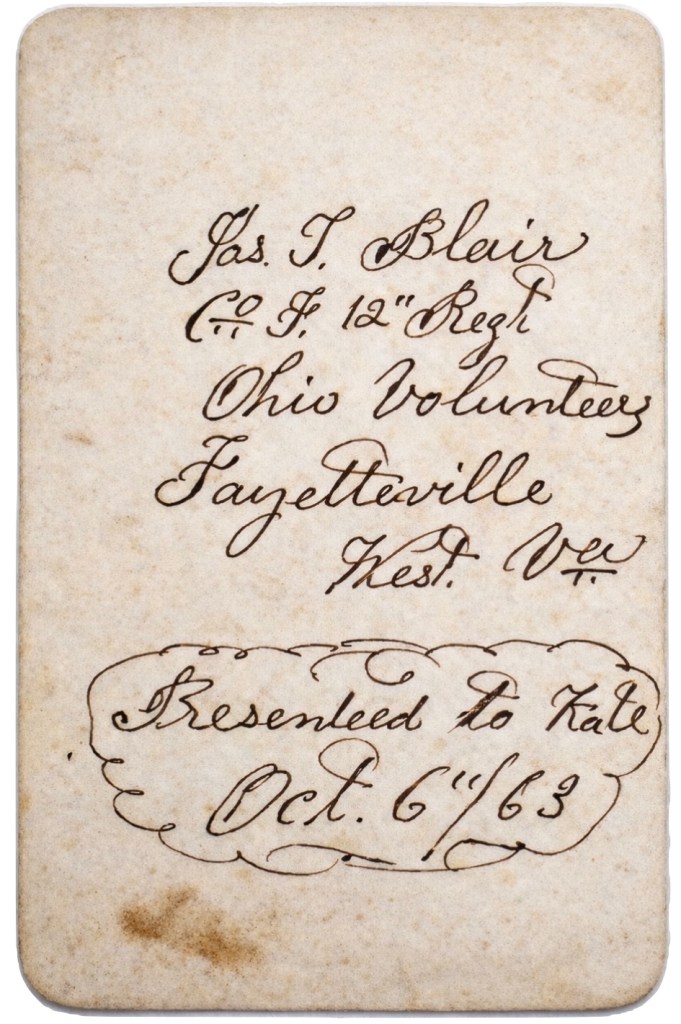 Jas. T. Blair
Co F. 12" Regt
Ohio Volunteers
Fayetteville
West. Va
Presenteed to Kate
Oct. 6"/63